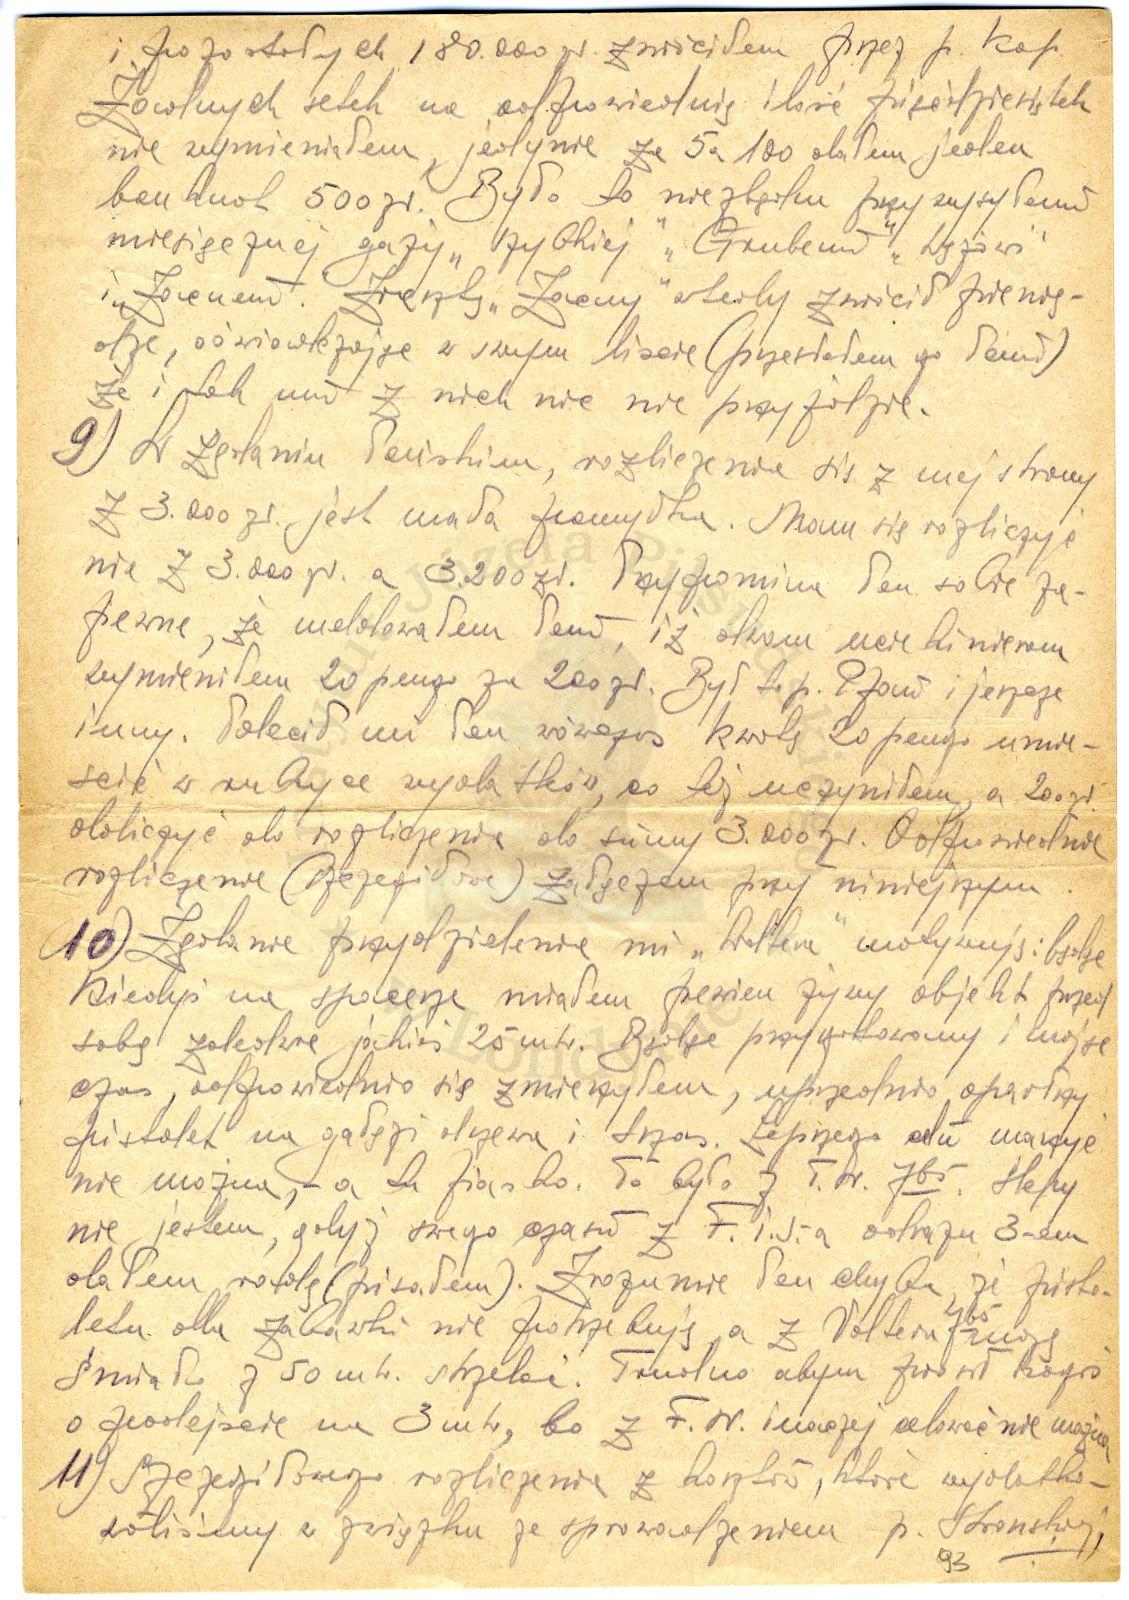 i pozostałych 180.000 zł. zwróciłem przez p. Kap
Żadnych setek na odpowiednią ilość pięćdziesiątek
nie wymieniałem, jedynie za 5 a 100 dałem jeden
banknot 500 zł. Było to niezbędne przy wysyłaniu
miesięcznej gaży „szybkiej” „Grubemu” „
i „Zacnemu”. Zresztą „Zacny” wtedy zwrócił pienią-
dze, oświadczając w swym liście (przesłałem go Panu)
że i tak mu z nich nic nie przyjdzie.
9) W żądaniu Pańskim, rozliczenia się z mej strony
z 3.000 zł. jest mała pomyłka. Mam się rozliczyć
nie z 3.000 zł. a 3.200 zł. Przypomina Pan sobie za-
pewne, że meldowałem Panu, iż dwom uciekinierom
wymieniłem 20 pengo za 200 zł. Był to p. i jeszcze
inny. Polecił mi Pan wówczas kwotę 20 pengo umie-
ścić w rubryce wydatków, co też uczyniłem, a 200 zł.
doliczyć do rozliczenia do sumy 3.000 zł. Odpowiednie
rozliczenie (szczegółowe) załączam przy niniejszym.
10) Żądanie przydzielenia mi „Waltera” motywuję: będąc
kiedyś na spacerze miałem pewien żywy objekt przed
sobą zaledwie jakieś 25 mtr. Będąc przygotowany i mając
czas, odpowiednio się zmierzyłem, uprzednio oparłszy
pistolet na gałęzi drzewa i trzas. Lepszego celu marzyć
nie można, – a tu fiasko. To było z F.N. 765. Ślepy
nie jestem, gdyż swego czasu z F.N.-a odrazu 3-em
dałem radę (pisałem). Zrozumie Pan chyba, że pisto-
letu dla zabawki nie potrzebuję, a z Waltera 765 mogę
śmiało z 50 mtr. strzelać. Trudno abym prosił kogoś
o podejście na 3 mtr, bo z F.N. inaczej celować nie można
11) Szczegółowego rozliczenia z kosztów, które wydatko-
waliśmy w związku ze sprowadzeniem p. Stronskiej,
93